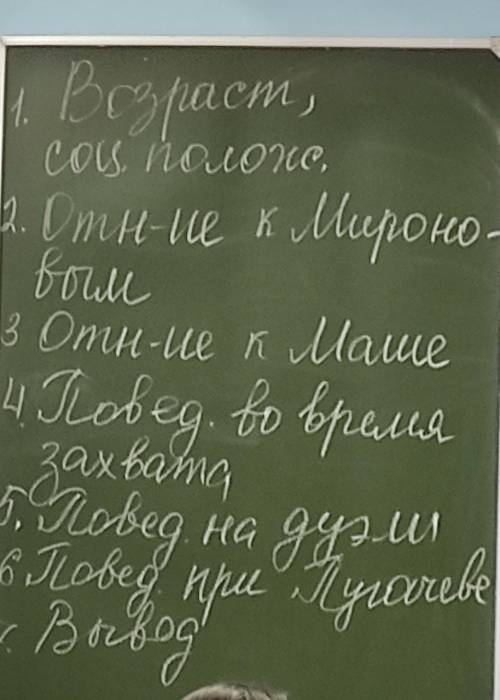 1. Возраст,
соц. полож.
2. Отн-ие к Мироно-
вым
3 Отн-ие к Маше
4. Повед. во время
захвата
5. Повед. на дуэли
6 Повед. при Пугачеве
Вывод